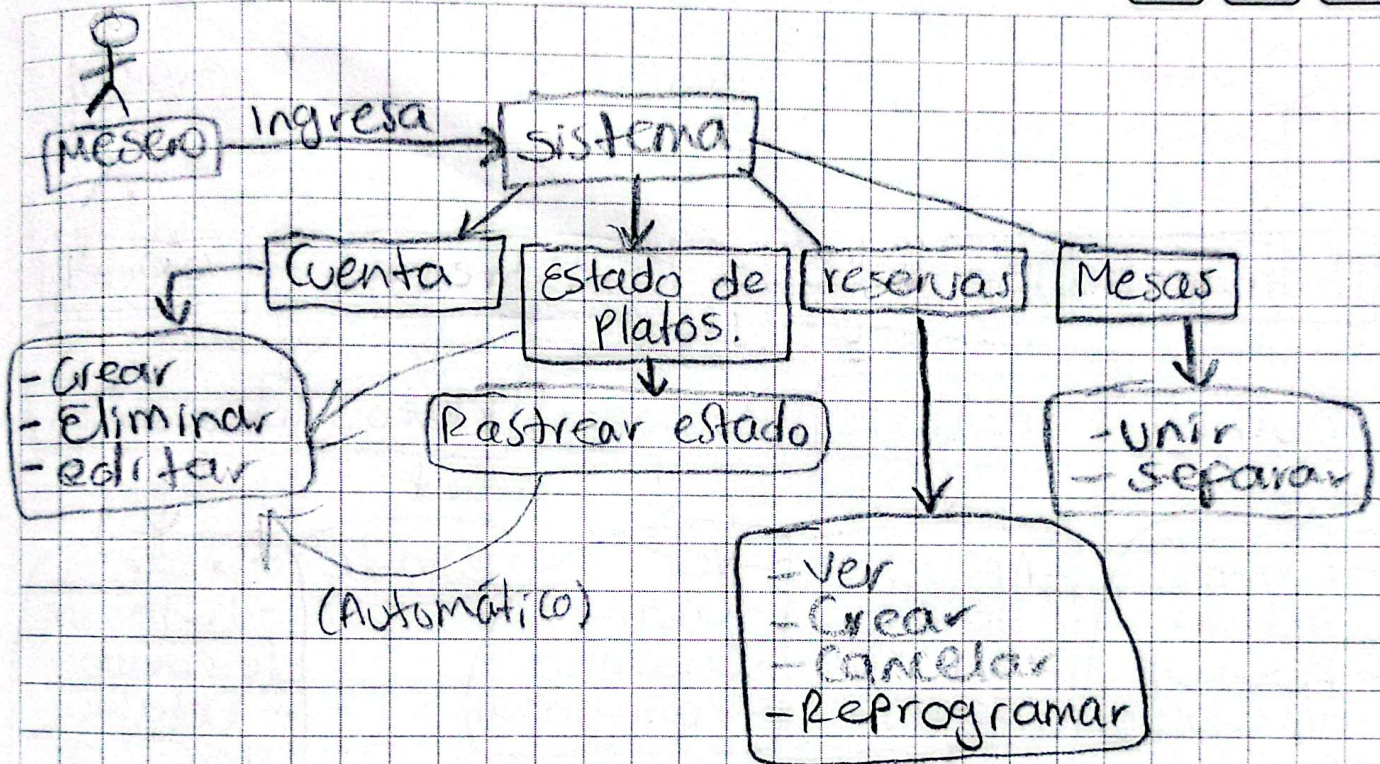 Mesero
Ingresa
sistema
Cuenta
Estado de
Platos.
reservas
Mesas
- Crear
- Eliminar
- editar
Rastrear estado
- unir
- separar
(Automático)
- Ver
- Crear
- Cancelar
- Reprogramar